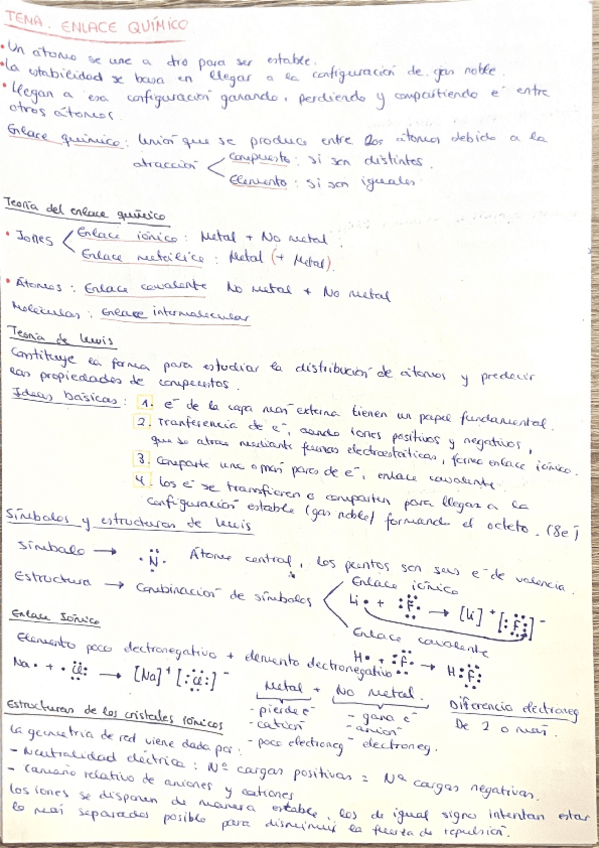 TEMA. ENLACE QUÍMICO
• Un átomo se une a otro para ser estable.
• La estabilidad se basa en llegar a la configuración de gas noble.
• Llegan a esa configuración ganando, perdiendo y compartiendo e⁻ entre
otros átomos.
Enlace químico: Unión que se produce entre dos átomos debido a la
atracción < Compuesto: si son distintos.
Elemento: si son iguales
Teoría del enlace químico
• Iones < Enlace iónico: Metal + No metal.
Enlace metálico: Metal (+ Metal).
• Átomos: Enlace covalente No metal + No metal
Moléculas: Enlace intermolecular
Teoría de Lewis
Constituye la forma para estudiar la distribución de átomos y predecir
las propiedades de compuestos.
Ideas básicas: 1. e⁻ de la capa más externa tienen un papel fundamental.
2. Tranferencia de e⁻, iones positivos y negativos,
que se atraen mediante fuerzas electroestáticas, forma enlace iónico.
3. Comparte uno o más pares de e⁻, enlace covalente.
4. Los e⁻ se transfieren o comparten para llegar a la
configuración estable (gas noble) formando el octeto. (8e⁻)
Símbolos y estructuras de Lewis
Símbolo → N Átomo central, los puntos son sus e⁻ de valencia.
Estructura → Combinación de símbolos < Enlace iónico
Li• + F → [Li]⁺ [F]⁻
Enlace covalente
H• + F → H:F
Enlace Iónico
Elemento poco electronegativo + elemento electronegativo
Na• + Cl → [Na]⁺ [Cl]⁻
Metal + No metal. Diferencia electroneg
- pierde e⁻ - gana e⁻ De 2 o más.
- catión - anión
- poco electroneg - electroneg.
Estructuras de los cristales iónicos
La geometría de red viene dada por:
- Neutralidad eléctrica: Nº cargas positivas = Nº cargas negativas.
- Tamaño relativo de aniones y cationes
Los iones se disponen de manera estable, los de igual signo intentan estar
lo más separados posible para disminuir la fuerza de repulsión.